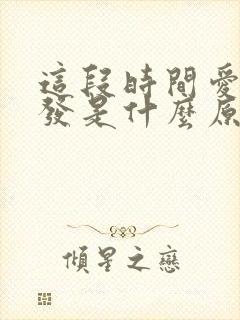 這段時間愛
發是什麼原
傾星之戀